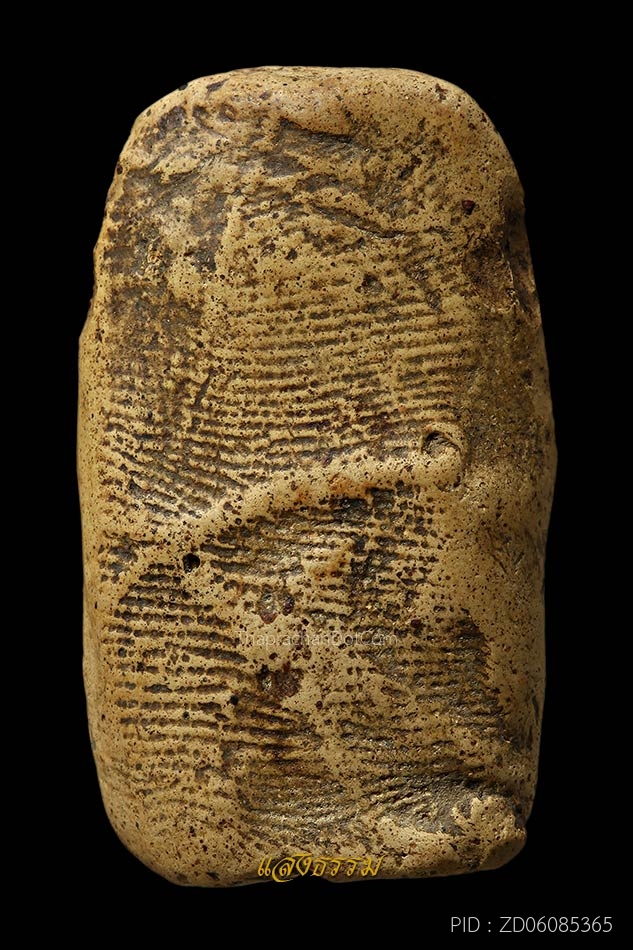 Thaprachandot.com
แสงธรรม
PID : ZD06085365